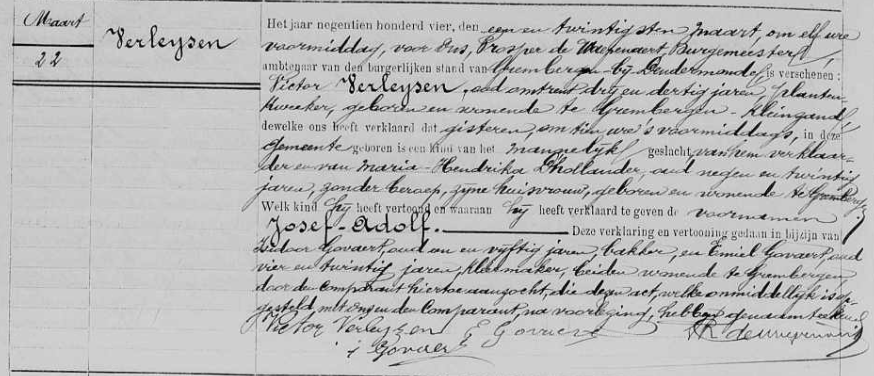 Maart
22
Verleysen
Het jaar negentien honderd vier, den een en twintigsten maart, om elf ure
voormiddag, voor Ons, Prosper de Burgemeester,
ambtenaar van den burgerlijken stand van Grembergen bij Dendermonde, is verschenen:
Victor Verleysen, oud omtrent dry en dertig jaren, planten-
kweeker, geboren en wonende te Grembergen - Kleinzand,
dewelke ons heeft verklaard dat gisteren, om tien ure 's voormiddags, in deze
gemeente geboren is een kind van het mannelyk geslacht, van hem verklaar-
der en van Maria-Hendrika D'hollander, oud negen en twintig
jaren, zonder beroep, zyne huisvrouw, geboren en wonende te Grembergen.
Welk kind hij heeft vertoond en waaraan hij heeft verklaard te geven de voornamen
Josef-Adolf. Deze verklaring en vertooning gedaan in bijzijn van
Isidoor Govaert, oud en vyftig jaren, bakker, en Emiel Govaert, oud
vier en twintig jaren, kleermaker, beiden wonende te Grembergen
door den Comparant hiertoe aanzocht, die dezen act, welke onmiddellyk is op-
gesteld, met ons en den Comparant, na voorlezing, hebben
Victor Verleysen E Govaert
i Govaert